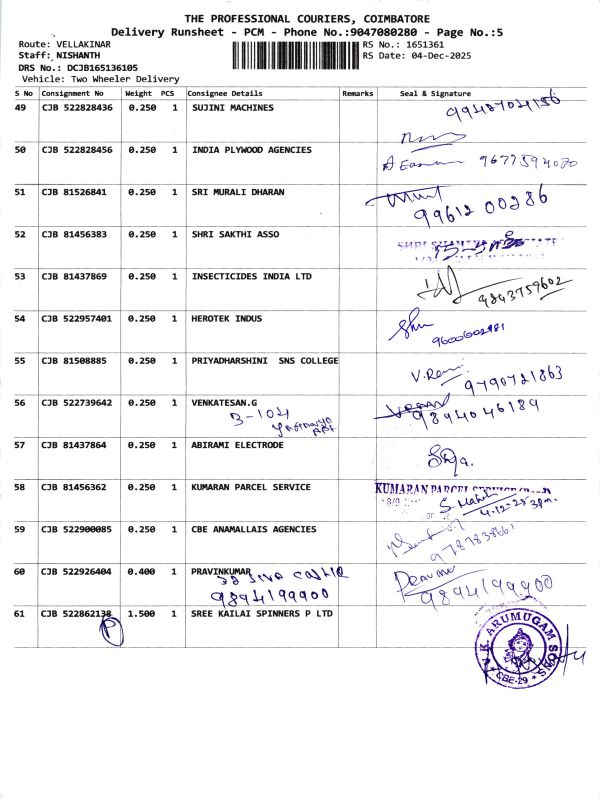 THE PROFESSIONAL COURIERS, COIMBATORE
Delivery Runsheet - PCM - Phone No.:9047080280 - Page No.:5
Route: VELLAKINAR
RS No.: 1651361
Staff: NISHANTH
RS Date: 04-Dec-2025
DRS No.: DCJB165136105
Vehicle: Two Wheeler Delivery
S No Consignment No Weight PCS Consignee Details Remarks Seal & Signature
49 CJB 522828436 0.250 1 SUJINI MACHINES
50 CJB 522828456 0.250 1 INDIA PLYWOOD AGENCIES 9677594070
51 CJB 81526841 0.250 1 SRI MURALI DHARAN 99612 00286
52 CJB 81456383 0.250 1 SHRI SAKTHI ASSO
53 CJB 81437869 0.250 1 INSECTICIDES INDIA LTD 9843759602
54 CJB 522957401 0.250 1 HEROTEK INDUS
55 CJB 81508885 0.250 1 PRIYADHARSHINI SNS COLLEGE 9790721863
56 CJB 522739642 0.250 1 VENKATESAN.G 9894046189
B-104
57 CJB 81437864 0.250 1 ABIRAMI ELECTRODE
58 CJB 81456362 0.250 1 KUMARAN PARCEL SERVICE KUMARAN PARCEL SERVICE
4-12-25
59 CJB 522900085 0.250 1 CBE ANAMALLAIS AGENCIES
60 CJB 522926404 0.400 1 PRAVINKUMAR
9894199900 9894199900
61 CJB 522862138 1.500 1 SREE KAILAI SPINNERS P LTD
P
V.K. ARUMUGAM SONS
CBE-29